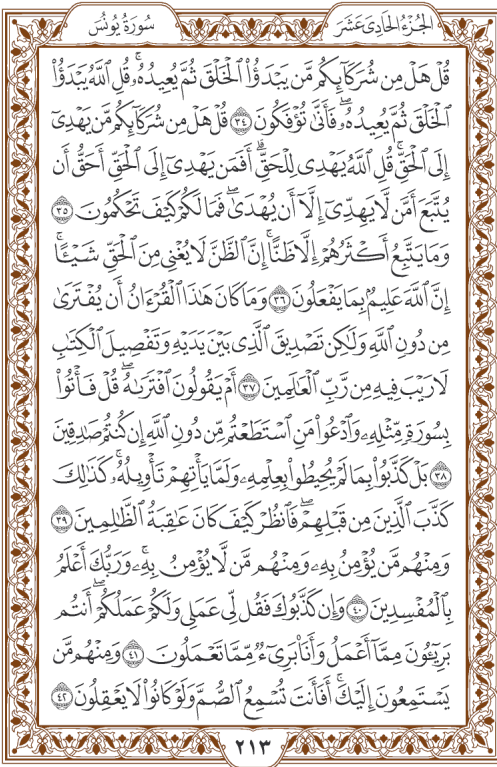 الجُزْءُ الحَادِيَ عَشَرَ
سُورَةُ يُونُسَ
قُلْ هَلْ مِن شُرَكَآئِكُم مَّن يَبْدَؤُاْ ٱلْخَلْقَ ثُمَّ يُعِيدُهُۥۚ قُلِ ٱللَّهُ يَبْدَؤُاْ
ٱلْخَلْقَ ثُمَّ يُعِيدُهُۥۖ فَأَنَّىٰ تُؤْفَكُونَ ٣٤ قُلْ هَلْ مِن شُرَكَآئِكُم مَّن يَهْدِىٓ
إِلَى ٱلْحَقِّۚ قُلِ ٱللَّهُ يَهْدِى لِلْحَقِّۗ أَفَمَن يَهْدِىٓ إِلَى ٱلْحَقِّ أَحَقُّ أَن
يُتَّبَعَ أَمَّن لَّا يَهِدِّىٓ إِلَّآ أَن يُهْدَىٰۖ فَمَا لَكُمْ كَيْفَ تَحْكُمُونَ ٣٥
وَمَا يَتَّبِعُ أَكْثَرُهُمْ إِلَّا ظَنًّاۚ إِنَّ ٱلظَّنَّ لَا يُغْنِى مِنَ ٱلْحَقِّ شَيْـًٔاۚ
إِنَّ ٱللَّهَ عَلِيمٌۢ بِمَا يَفْعَلُونَ ٣٦ وَمَا كَانَ هَٰذَا ٱلْقُرْءَانُ أَن يُفْتَرَىٰ
مِن دُونِ ٱللَّهِ وَلَٰكِن تَصْدِيقَ ٱلَّذِى بَيْنَ يَدَيْهِ وَتَفْصِيلَ ٱلْكِتَٰبِ
لَا رَيْبَ فِيهِ مِن رَّبِّ ٱلْعَٰلَمِينَ ٣٧ أَمْ يَقُولُونَ ٱفْتَرَىٰهُۖ قُلْ فَأْتُواْ
بِسُورَةٍ مِّثْلِهِۦ وَٱدْعُواْ مَنِ ٱسْتَطَعْتُم مِّن دُونِ ٱللَّهِ إِن كُنتُمْ صَٰدِقِينَ
٣٨ بَلْ كَذَّبُواْ بِمَا لَمْ يُحِيطُواْ بِعِلْمِهِۦ وَلَمَّا يَأْتِهِمْ تَأْوِيلُهُۥۚ كَذَٰلِكَ
كَذَّبَ ٱلَّذِينَ مِن قَبْلِهِمْۖ فَٱنظُرْ كَيْفَ كَانَ عَٰقِبَةُ ٱلظَّٰلِمِينَ ٣٩
وَمِنْهُم مَّن يُؤْمِنُ بِهِۦ وَمِنْهُم مَّن لَّا يُؤْمِنُ بِهِۦۚ وَرَبُّكَ أَعْلَمُ
بِٱلْمُفْسِدِينَ ٤٠ وَإِن كَذَّبُوكَ فَقُل لِّى عَمَلِى وَلَكُمْ عَمَلُكُمْۖ أَنتُم
بَرِيٓـُٔونَ مِمَّآ أَعْمَلُ وَأَنَا۠ بَرِىٓءٌ مِّمَّا تَعْمَلُونَ ٤١ وَمِنْهُم مَّن
يَسْتَمِعُونَ إِلَيْكَۚ أَفَأَنتَ تُسْمِعُ ٱلصُّمَّ وَلَوْ كَانُواْ لَا يَعْقِلُونَ ٤٢
٢١٣